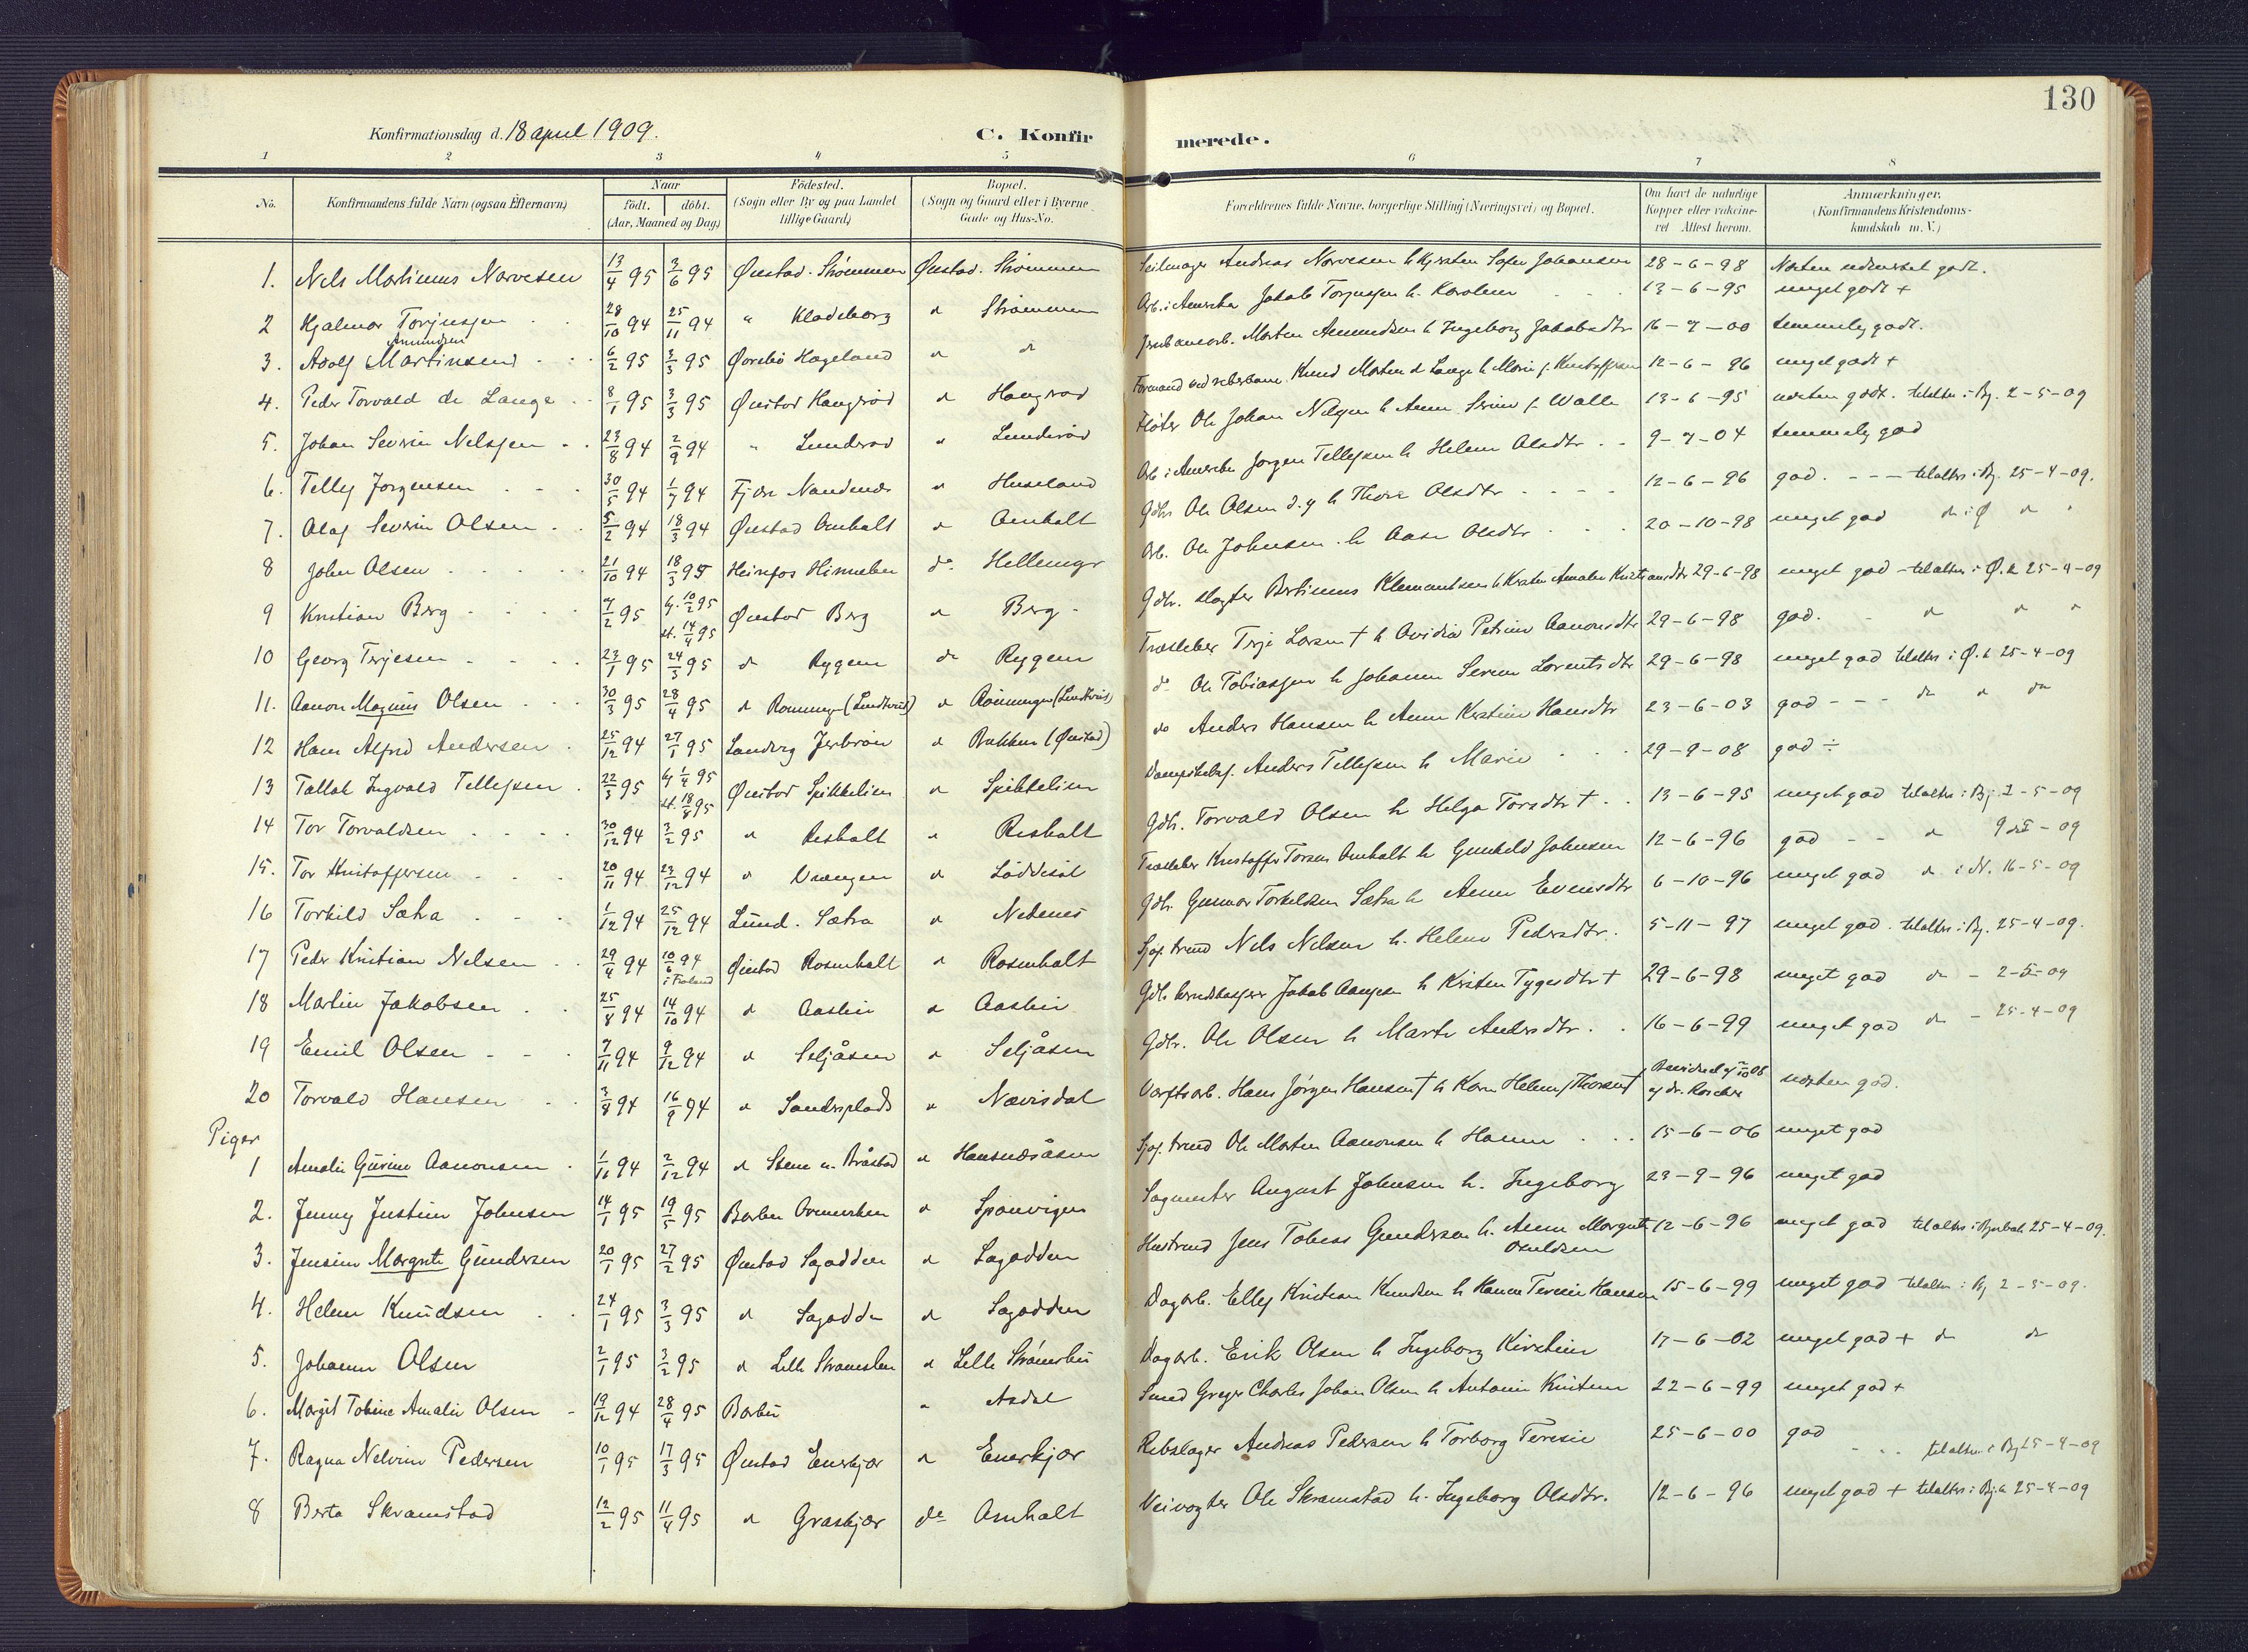 130
Konfirmationsdag d. 18 april 1909.
C. Konfirmerede.
1 2 3 4 5 6 7 8
No.
Konfirmandens fulde Navn (ogsaa Efternavn)
Naar
født. døbt.
(Aar, Maaned og Dag)
Fødested.
(Sogn eller By og paa Landet
tillige Gaard)
Bopæl.
(Sogn og Gaard eller i Byerne
Gade og Hus-No.
Forældrenes fulde Navne, borgerlige Stilling (Næringsvei) og Bopæl.
Om havt de naturlige
Kopper eller vakcine-
ret Attest herom.
Anmærkninger.
(Konfirmandens Kristendoms-
kundskab m. V.)
1. Nils Martinus Narvesen 13/4 95 3/6 95 Øiestad. Strømmen Øiestad. Strømmen Seilmager Andreas Narvesen h Kirsten Sofie Johansen 28-6-98 Næsten udmerket godt.
2 Hjalmar Torjussen 28/10 94 25/11 94 " Kladeborg do Strømmen Arb. i Amerika Jakob Torjussen h. Karoline 13-6-95 meget godt +
Amundsen
3. Adolf Martinsen 6/2 95 3/3 95 Øvrebø Hageland do do Morten Amundsen h Ingeborg Jakobsdtr 16-7-00 temmelig godt.
4. Peder Torvald de Lange 8/1 95 3/3 95 Øiestad Haugrød do Haugrød Formand ved Knud Morten de Lange h Marie f. Kristoffersen 12-6-96 meget godt +
5. Johan Severin Nilssen 23/8 94 2/9 94 " Lunderød " Lunderød Fløter Ole Johan Nilsen h Anne Serine f. Walle 13-6-95 næsten godt. tilalters i Bj. 2-5-09
6. Tellef Jørgensen 30/5 94 1/7 94 Fjære Nandenes " Huseland Arb. i Amerika Jørgen Tellefsen h Helene Olsdtr 9-7-04 temmelig god
7. Olaf Severin Olsen 5/2 94 18/3 94 Øiestad Omholt do Omholt Gdbr. Ole Olsen d.y h Thore Olsdtr 12-6-96 god. - - - tilalters i Bj. 25-4-09.
8 John Olsen 21/10 94 18/3 95 Heirefos Himmelen do. Hellemyr Arb. Ole Johnsen h Aase Olsdtr 20-10-98 meget god do i Ø do "
9 Kristian Berg 7/2 95 hj. 10/2 95 st. 14/4 95 Øiestad Berg do Berg Gdbr. slagter Bertinius Klemmentsen h Kirsten Amalie Kristiansdtr 29-6-98 meget god - tilalters i Ø. k 25-4-09
10 Georg Terjesen 23/1 95 24/3 95 do Rygene do Rygene Træsliber Terje Larsen † h Ovidia Petrine Aanonsdtr 29-6-98 god. do do "
11. Aanon Magnus Olsen 30/3 95 28/4 95 do Rønningen (Lindtveit) do Rønningen (Lindtveit) do Ole Tobiassen h Johanne Serine Lorentsdtr 29-6-98 meget god tilalters i Ø. k 25-4-09
12 Hans Alfred Andersen 25/12 94 27/1 95 Landvig Jerbroen do Bakken (Øiestad) do Anders Hansen h Anne Kirstine Hansdtr 23-6-03 god - - - do do do
13 Tallak Ingvald Tellefsen 22/3 95 hj 1/4 95 st. 18/8 95 Øiestad Spikkelien do Spikkelien Anders Tellefsen h Marie 29-9-08 god ÷
14 Tor Torvaldsen 30/12 94 3/2 95 do Risholt do Risholt Gdbr. Torvald Olsen h Helga Torsdtr † 13-6-95 meget god tilalters i Bj. 2-5-09
15. Tor Kristoffersen 20/11 94 23/12 94 do Vrængen do Løddesøl Træsliber Kristoffer Torsen Omholt h Gunhild Johnsen 12-6-96 god - - do 9 - 09
16 Torkild Sætra 1/12 94 25/12 94 Lund. Sætra do Nedenes Gdbr. Gunnar Torkildsen Sætra h Anne Evensdtr 6-10-96 meget god do i N. 16-5-09
17 Peder Kristian Nilsen 29/4 94 10/6 94 i Froland Øiestad Rosenholt do Rosenholt Nils Nilsen h. Helene Pedersdtr. 5-11-97 meget god. tilalters i Bj. 25-4-09.
18 Martin Jakobsen 25/8 94 14/10 94 do Aaslien do Aaslien Gdbr. Jakob Aanesen h Kirsten Tygesdtr † 29-6-98 meget god do - 2-5-09
19 Emil Olsen 7/11 94 9/12 94 do Seljåsen do Seljåsen Gdbr. Ole Olsen h Marte Andersdtr. 16-6-99 meget god do - 25-4-09
20 Torvald Hansen 3/8 94 16/9 94 do Sandersplads do Nævisdal Værftsarb. Hans Jørgen Hansen † h Karen Helene Thorsen † næsten god.
Piger
1 Amalie Gurine Aanonsen 1/11 94 2/12 94 do Stene u. Bråstad do Hansnæsåsen Ole Morten Aanonsen h Hanne 15-6-06 meget god
2. Jenny Justine Johnsen 14/1 95 19/5 95 Barbu do Spanvigen Sagmester August Johnsen h. Ingeborg 23-9-96 meget god
3. Jensine Margrete Gundersen 20/1 95 27/2 95 Øiestad Sagodden do Sagodden Jens Tobias Gundersen h. Anne Margrete 12-6-96 meget god tilalters i 25-4-09.
4. Helene Knudsen 24/1 95 3/3 95 do Sagodden do Sagodden Dagarb. Ellef Kristian Knudsen h Hanne Teresie Hansen 15-6-99 meget god tilalters i Bj 2-5-09.
5. Johanne Olsen 2/1 95 3/2 95 do Lille Strømsbu do Lille Strømsbu Dagarb. Erik Olsen h Ingeborg Kirstine 17-6-02 meget god + do do
6. Margit Tobine Amalie Olsen 19/12 94 28/4 95 Barbu " Asdal Smed Charles Johan Olsen h Antonie Kristine 22-6-99 meget god +
7. Ragna Nelvine Pedersen 10/1 95 17/3 95 Øiestad Enerkjær do Enerkjær Rebslager Andreas Pedersen h Torborg Teresie 25-6-00 god - - - tilalters i Bj 25-4-09
8 Berta Skramstad 12/2 95 11/4 95 do Graskjær do Omholt Veivogter Ole Skramstad h. Ingeborg Olsdtr. 12-6-96 meget god + tilalters i Bj. k 25-4-09